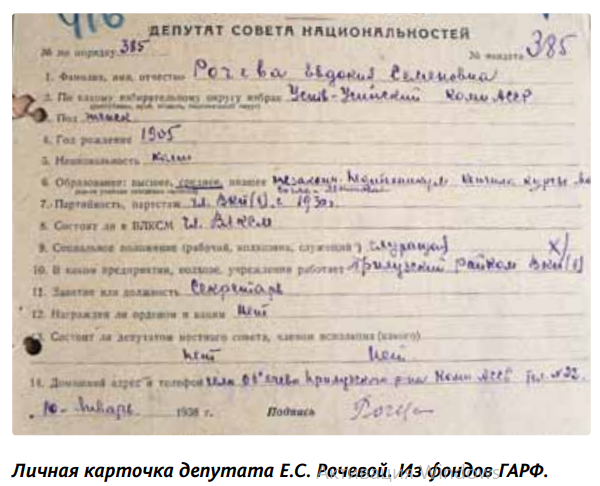 416
ДЕПУТАТ СОВЕТА НАЦИОНАЛЬНОСТЕЙ
№ по порядку 385 № мандата 385
1. Фамилия, имя, отчество Рочева Евдокия Семеновна
2. По какому избирательному округу избран Усть-Усинский Коми АССР
3. Пол женск
4. Год рождение 1905
5. Национальность коми
6. Образование: высшее, среднее, низшее незаконч. кончила курсы
7. Партийность, партстаж чл. ВКП(б) с 1930 г.
8. Состоит ли в ВЛКСМ чл. ВЛКСМ
9. Социальное положение (рабочий, колхозник, служащий) служащая
10. В каком предприятии, колхозе, учреждении работает Прилузский райком ВКП(б)
11. Занятие или должность Секретарь
12. Награжден ли орденом и каким Нет
13. Состоит ли депутатом местного совета, членом исполкома (какого)
Нет Нет
14. Домашний адрес и телефон село Объячево Прилузского р-на Коми АССР Тел. №22.
10 - Январь 1938 г. Подпись Рочева
Личная карточка депутата Е.С. Рочевой. Из фондов ГАРФ.
Активация Windows